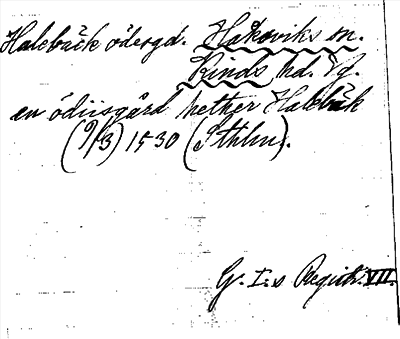 Halebäck ödergd. Håkoviks sn.
Kinds hd. Vg.
en ödiisgård hether Halebäk
(9/3) 1530 (Sthlm).
G. I:s Registr. VII.